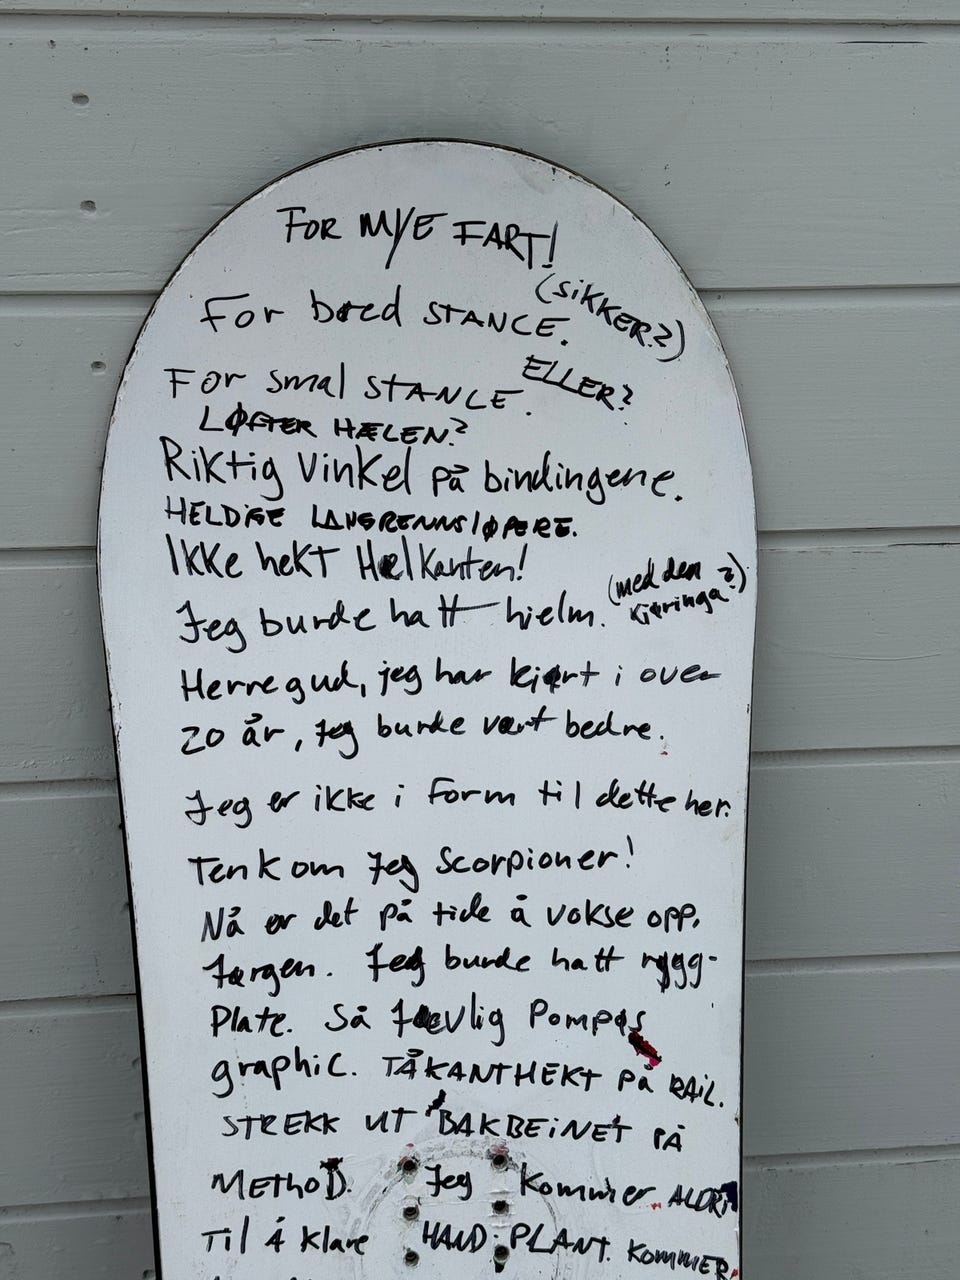 FOR MYE FART!
(SIKKER?)
For bred STANCE.
ELLER?
For smal STANCE.
LØFTER HÆLEN?
Riktig vinkel på bindingene.
HELDIGE LANGRENNSLØPERE.
Ikke hekt Hælkanten!
(med den kjeringa?)
Jeg burde hatt hjelm.
Herregud, jeg har kjørt i over
20 år, jeg burde vært bedre.
Jeg er ikke i form til dette her.
Tenk om jeg scorpioner!
Nå er det på tide å vokse opp,
Jørgen. Jeg burde hatt rygg-
Plate. Så Jævlig Pompøs
graphic. TÅKANTHEKT PÅ RAIL.
STREKK UT BAKBEINET PÅ
METHOD. Jeg Kommer ALDRI
Til å klare HAND-PLANT. KOMMER